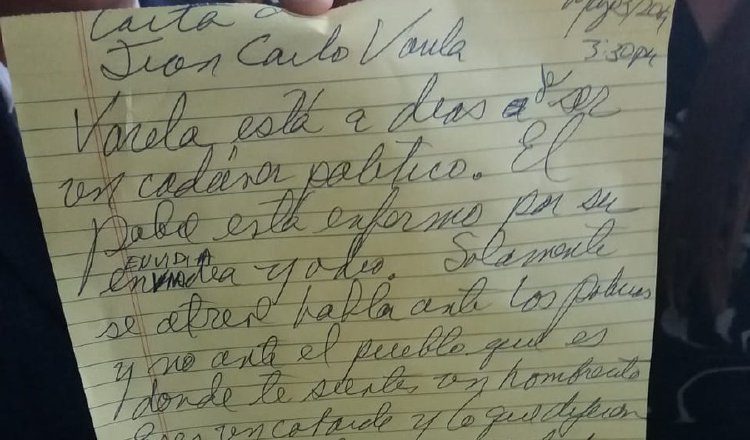 Carta a
Juan Carlo Varela
Mayo 3/2019
3:30 pm
Varela está a dias de ser
un cadáver politico. El
pobre está enfermo por su
ENVIDIA
envidia y odio. Solamente
se atreve habla ante los
y no ante el pueblo que es
donde te sientes un hombrecito
Eres un cobarde y lo que dijeron